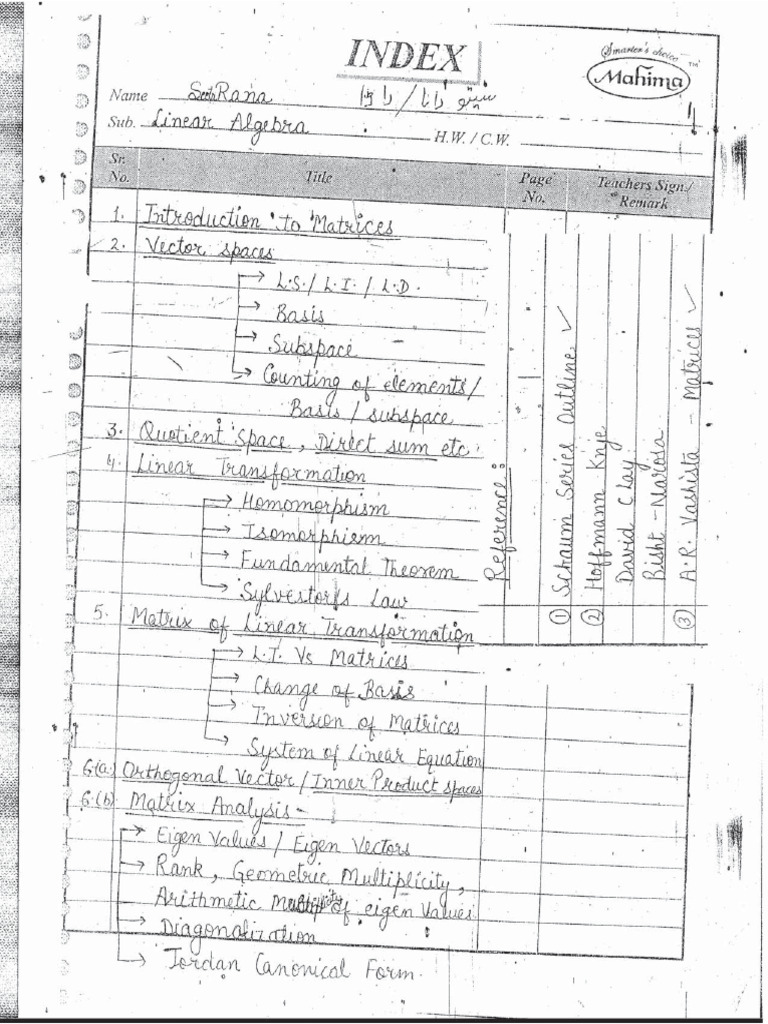 INDEX
Smarter's choice
Mahima
TM
Name Rana
Sub. Linear Algebra H.W. / C.W.
Sr. No. Title Page No. Teachers Sign./ Remark
1. Introduction to Matrices
2. Vector spaces
→ L.S./ L.I. / L.D.
→ Basis
→ Subspace
→ Counting of elements/
Basis / subspace
3. Quotient Space, Direct sum etc.
4. Linear Transformation
→ Homomorphism
→ Isomorphism
→ Fundamental Theorem
→ Sylvestor's Law
5. Matrix of Linear Transformation
→ L.T. Vs Matrices
→ Change of Basis
→ Inversion of Matrices
→ System of Linear Equation
6.(a) Orthogonal Vector / Inner Product spaces
6.(b) Matrix Analysis -
→ Eigen Values / Eigen Vectors
→ Rank, Geometric Multiplicity,
Arithmetic of eigen values
→ Diagonalization
→ Jordan Canonical Form.
Reference :
① Schaum Series Outline ✓
② Hoffmann Knje
David C Lay
Bisht - Narosa
③ A.R. Vashista - Matrices ✓